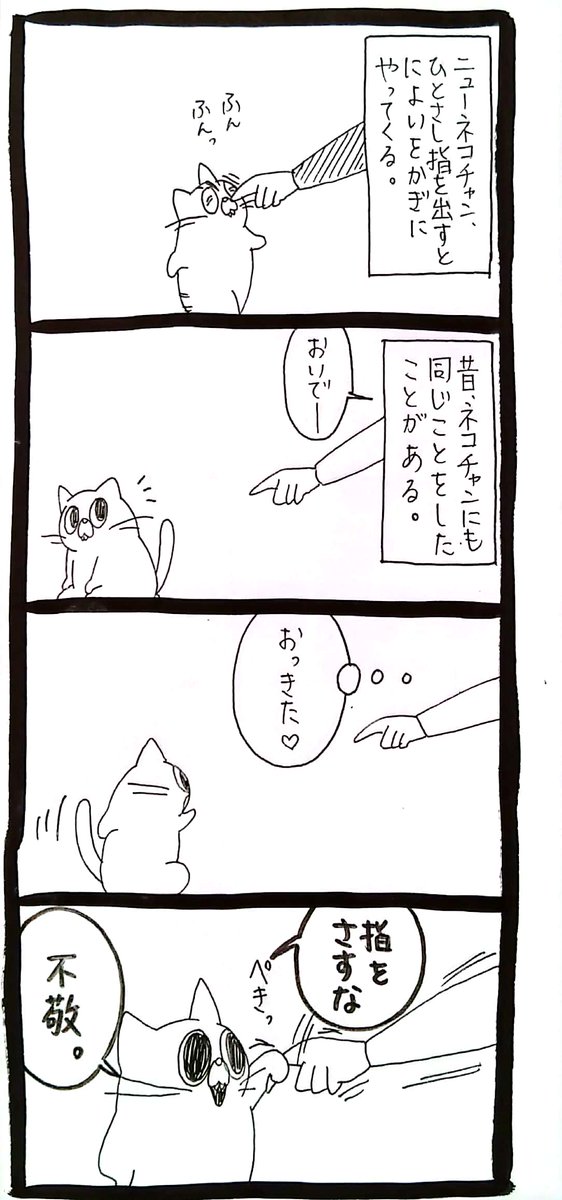 ニューネコチャン、
ひとさし指を出すと
によいをかぎに
やってくる。
ふん
ふんっ
昔、ネコチャンにも
同じことをした
ことがある。
おいでー
おっきた♡
指を
さすな
ぺきっ
不敬。